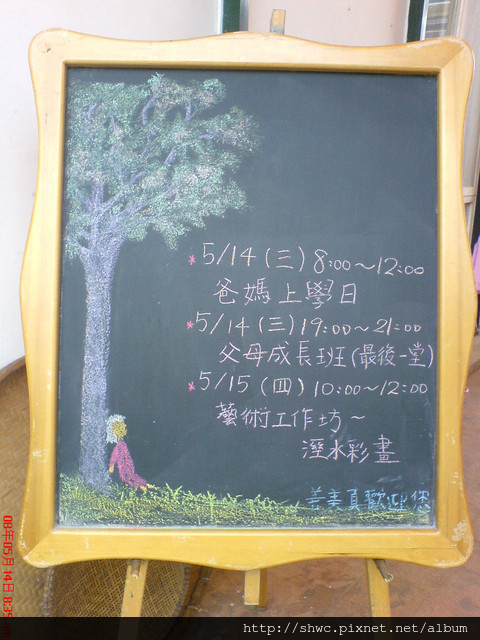 *5/14(三)8:00～12:00
爸媽上學日
*5/14(三)19:00～21:00
父母成長班(最後一堂)
*5/15(四)10:00～12:00
藝術工作坊～
溼水彩畫
善美真歡迎您
08年05月14日 8:35
http://shwc.pixnet.net/album